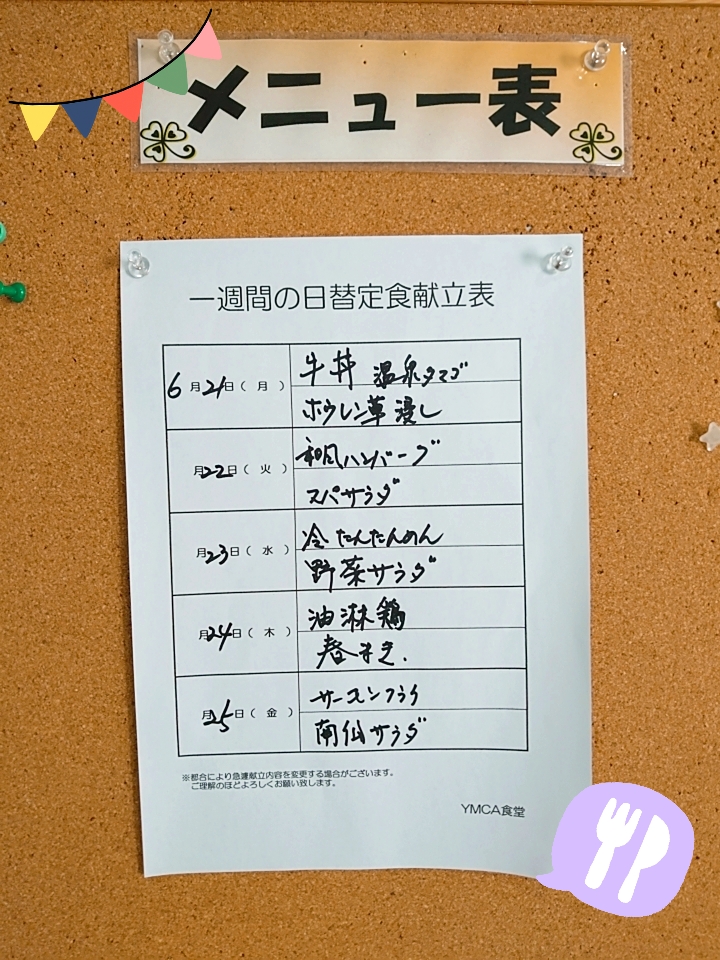 メニュー表
一週間の日替定食献立表
6月21日(月)
牛丼 温泉タマゴ
ホウレン草浸し
月22日(火)
和風ハンバーグ
スパサラダ
月23日(水)
冷たんたんめん
野菜サラダ
月24日(木)
油淋鶏
春まき.
月25日(金)
サーモンフライ
南仙サラダ
※都合により急遽献立内容を変更する場合がございます。
ご理解のほどよろしくお願い致します。
YMCA食堂